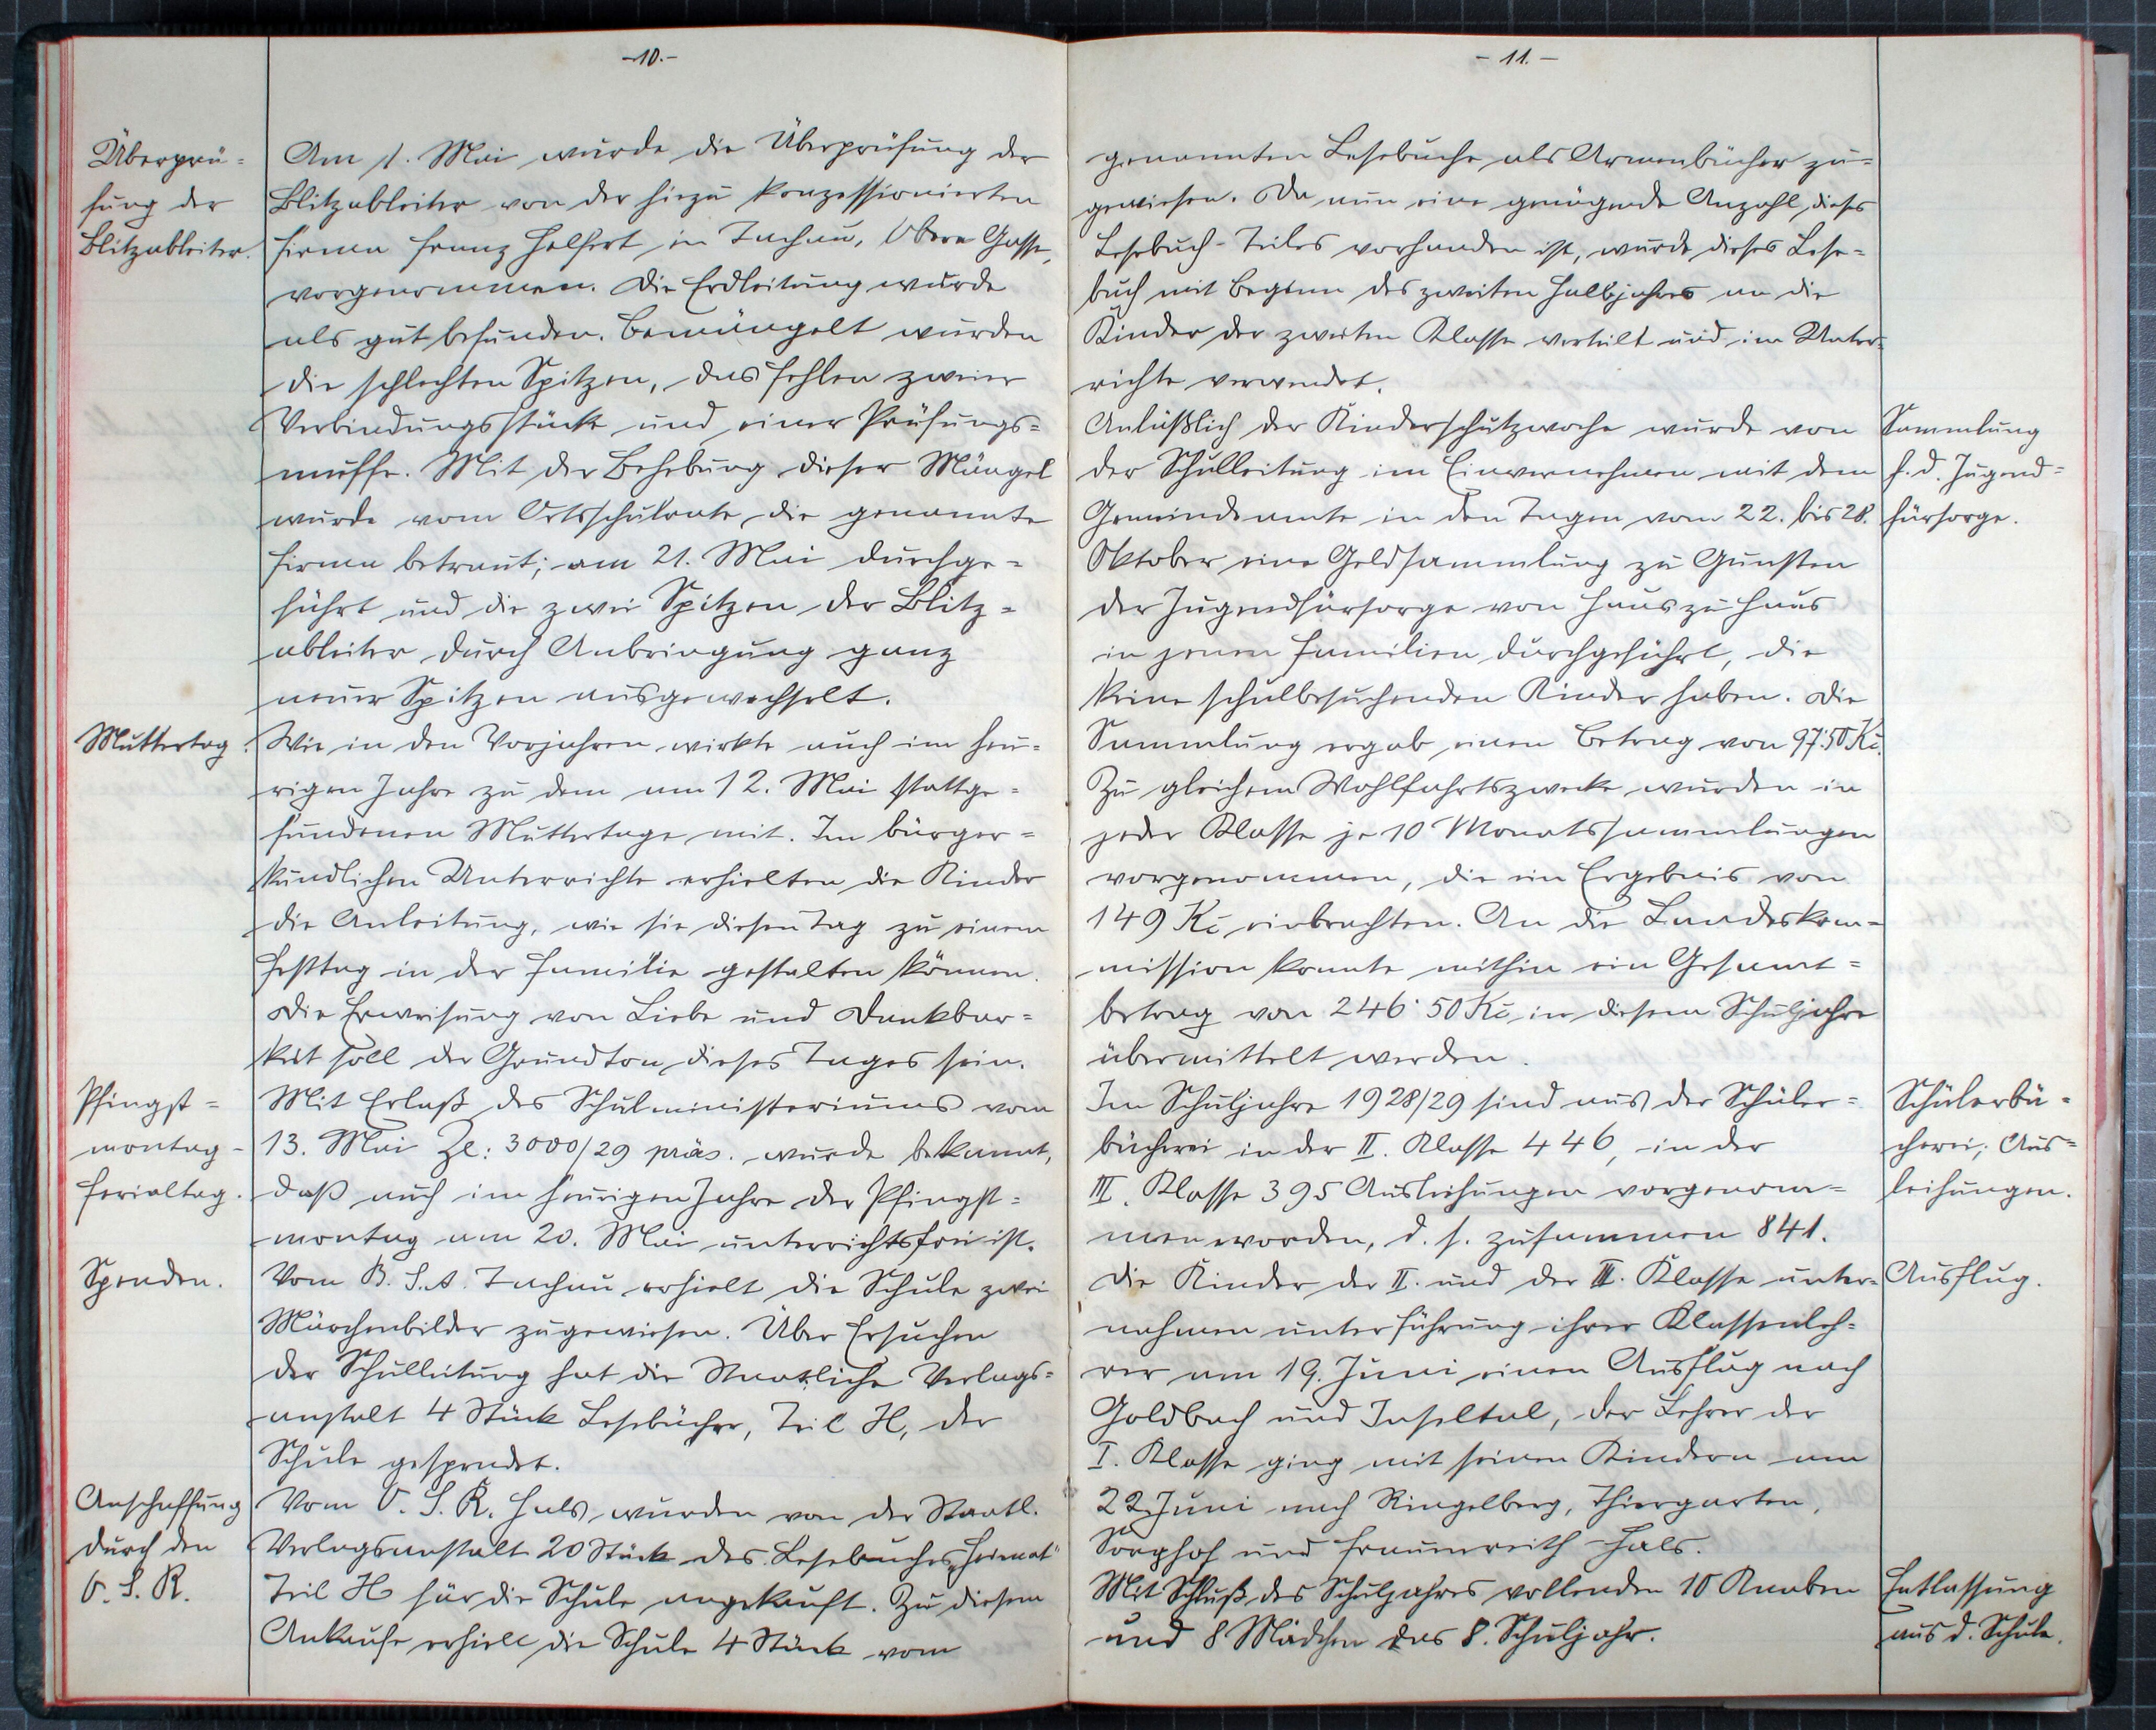 -10.-
Überprü-
fung der
Blitzableiter.
Am 1. Mai wurde die Überprüfung der
Blitzableiter von der hiezu konzessionierten
Firma Franz Helfert in Tachau, Obere Gasse,
vorgenommen. Die Erdleitung wurde
als gut befunden. Bemängelt wurden
die schlechten Spitzen, das Fehlen zweier
Verbindungsstücke und einer Prüfungs-
muffe. Mit der Behebung dieser Mängel
wurde vom Ortsschulrate die genannte
Firma betraut; am 21. Mai durchge-
führt und die zwei Spitzen der Blitz-
ableiter durch Anbringung ganz
neuer Spitzen ausgewechselt.
Muttertag.
Wie in den Vorjahren wirkte auch im heu-
rigen Jahre zu dem am 12. Mai stattge-
fundenen Muttertage mit. Im bürger-
kundlichen Unterrichte erhielten die Kinder
die Anleitung, wie sie diesen Tag zu einem
Festtag in der Familie gestalten können.
Die Erweisung von Liebe und Dankbar-
keit soll der Grundton dieses Tages sein.
Pfingst-
montag-
ferialtag.
Mit Erlaß des Schulministeriums vom
13. Mai Zl: 3000/29 präs. wurde bekannt,
daß auch im heurigen Jahre der Pfingst-
montag am 20. Mai unterrichtsfrei ist.
Spenden.
Vom B. S. A. Tachau erhielt die Schule zwei
Märchenbilder zugewiesen. Über Ersuchen
der Schulleitung hat die Staatliche Verlags-
anstalt 4 Stück Lesebücher, Teil H, der
Schule gespendet.
Anschaffung
durch den
O. S. R.
Vom O. S. R. Hals wurden von der Staatl.
Verlagsanstalt 20 Stück des Lesebuches „Heimat"
Teil H für die Schule angekauft. Zu diesem
Ankaufe erhielt die Schule 4 Stück vom
- 11. -
genannten Lesebuche als Armenbücher zu-
gewiesen. Da nun eine genügende Anzahl dieses
Lesebuch-Teiles vorhanden ist, wurde dieses Lese-
buch mit Beginn des zweiten Halbjahres an die
Kinder der zweiten Klasse verteilt und im Unter-
richte verwendet.
Anläßlich der Kinderschutzwoche wurde von
der Schulleitung im Einvernehmen mit dem
Gemeindeamte in den Tagen vom 22. bis 28.
Oktober eine Geldsammlung zu Gunsten
der Jugendfürsorge von Haus zu Haus
in jenen Familien durchgeführt, die
keine schulbesuchenden Kinder haben. Die
Sammlung ergab einen Betrag von 97.50 Kč.
Zu gleichem Wohlfahrtszwecke wurden in
jeder Klasse je 10 Monatssammlungen
vorgenommen, die ein Ergebnis von
149 Kč einbrachten. An die Landeskom-
mission konnte mithin ein Gesamt-
betrag von 246.50 Kč in diesem Schuljahre
übermittelt werden.
Sammlung
f. d. Jugend-
fürsorge.
Im Schuljahre 1928/29 sind aus der Schüler-
bücherei in der II. Klasse 446, in der
III. Klasse 395 Ausleihungen vorgenom-
men worden, d. s. zusammen 841.
Schülerbü-
cherei; Aus-
leihungen.
Die Kinder der II. und der III. Klasse unter-
nahmen unter Führung ihrer Klassenleh-
rer am 19. Juni einen Ausflug nach
Goldbach und Inseltal, der Lehrer der
I. Klasse ging mit seinen Kindern am
22. Juni nach Ringelberg, Thiergarten,
Sorghof und Frauenreith-Hals.
Ausflug.
Mit Schluß des Schuljahres vollenden 10 Knaben
und 8 Mädchen das 8. Schuljahr.
Entlassung
aus d. Schule.